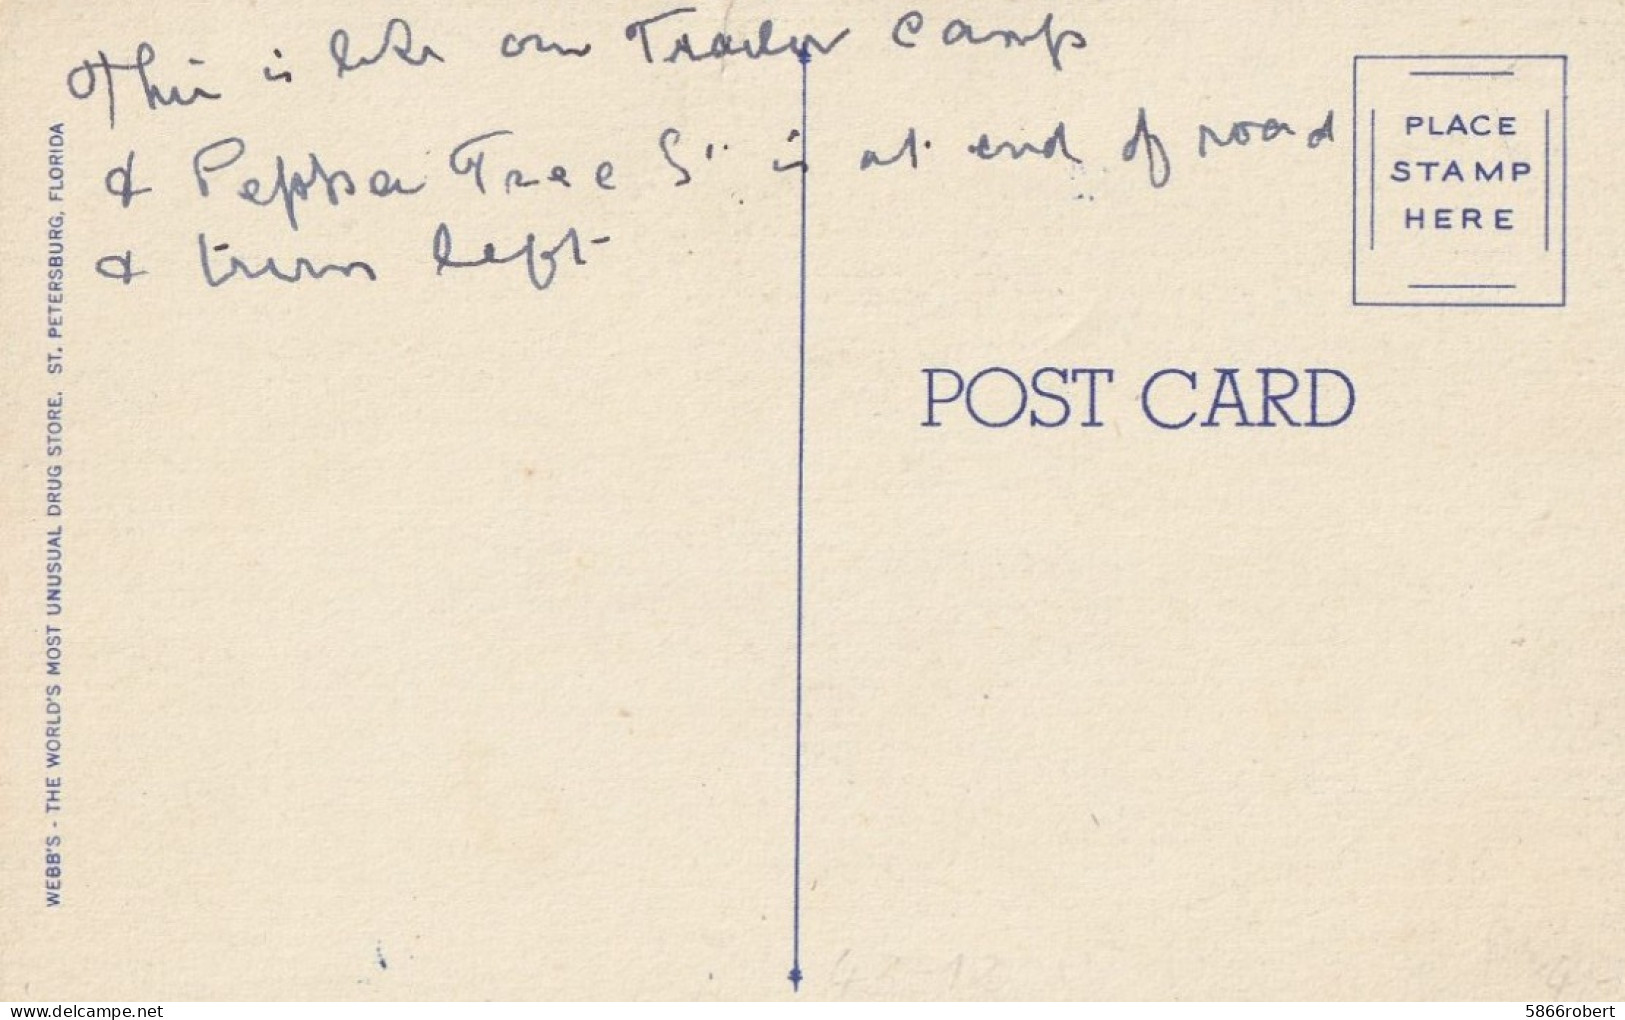 This is like our Trailer Camp
& Pepper Tree St is at end of road
& turn left
PLACE
STAMP
HERE
POST CARD
WEBB'S - THE WORLD'S MOST UNUSUAL DRUG STORE. ST. PETERSBURG, FLORIDA
delcampe.net
5866robert